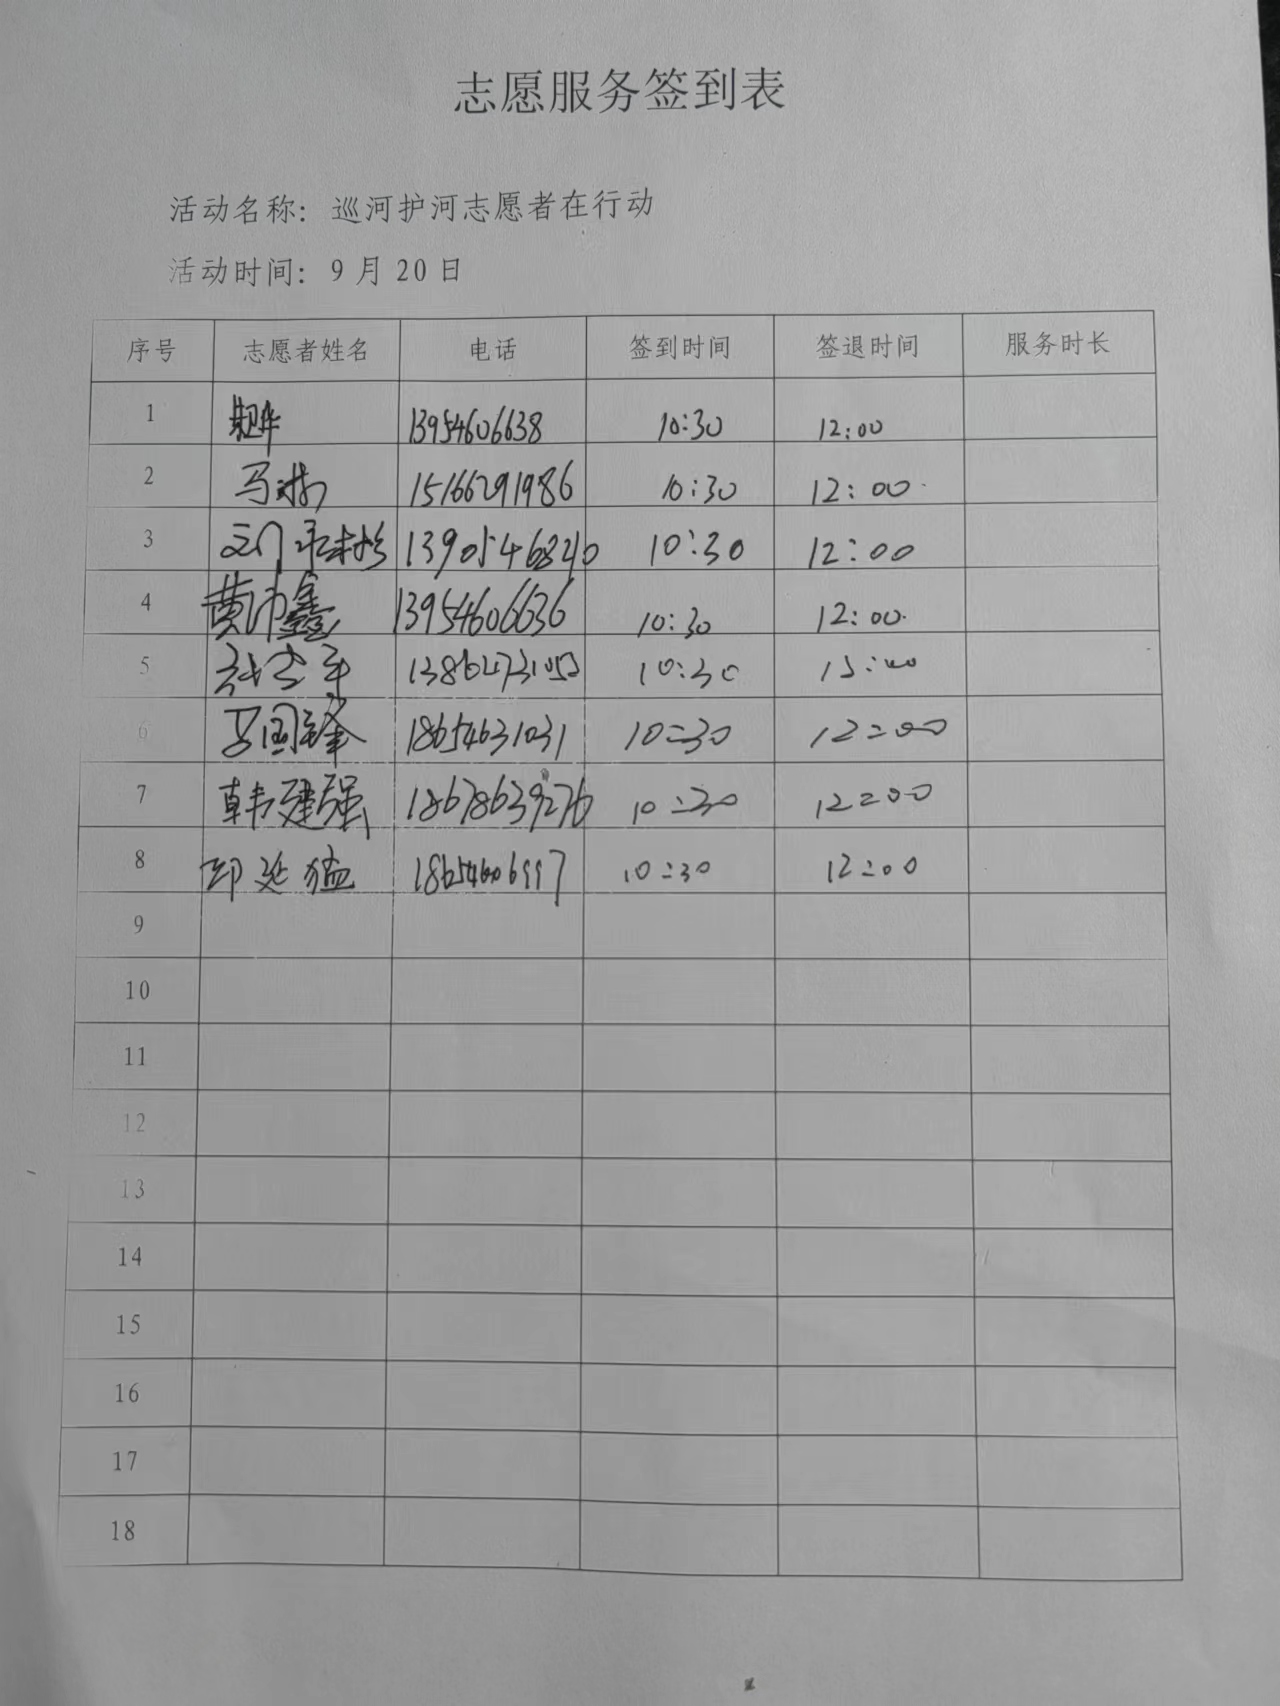 志愿服务签到表
活动名称：巡河护河志愿者在行动
活动时间：9月20日
序号 志愿者姓名 电话 签到时间 签退时间 服务时长
1 13954606638 10:30 12:00
2 马 15166291986 10:30 12:00
3 13905468240 10:30 12:00
4 黄沛鑫 13954606636 10:30 12:00
5 10:30
6 国锋 18654631031 10:30 12:00
7 韩建强 18678639276 10:30 12:00
8 延猛 18654606997 10:30 12:00
9
10
11
12
13
14
15
16
17
18